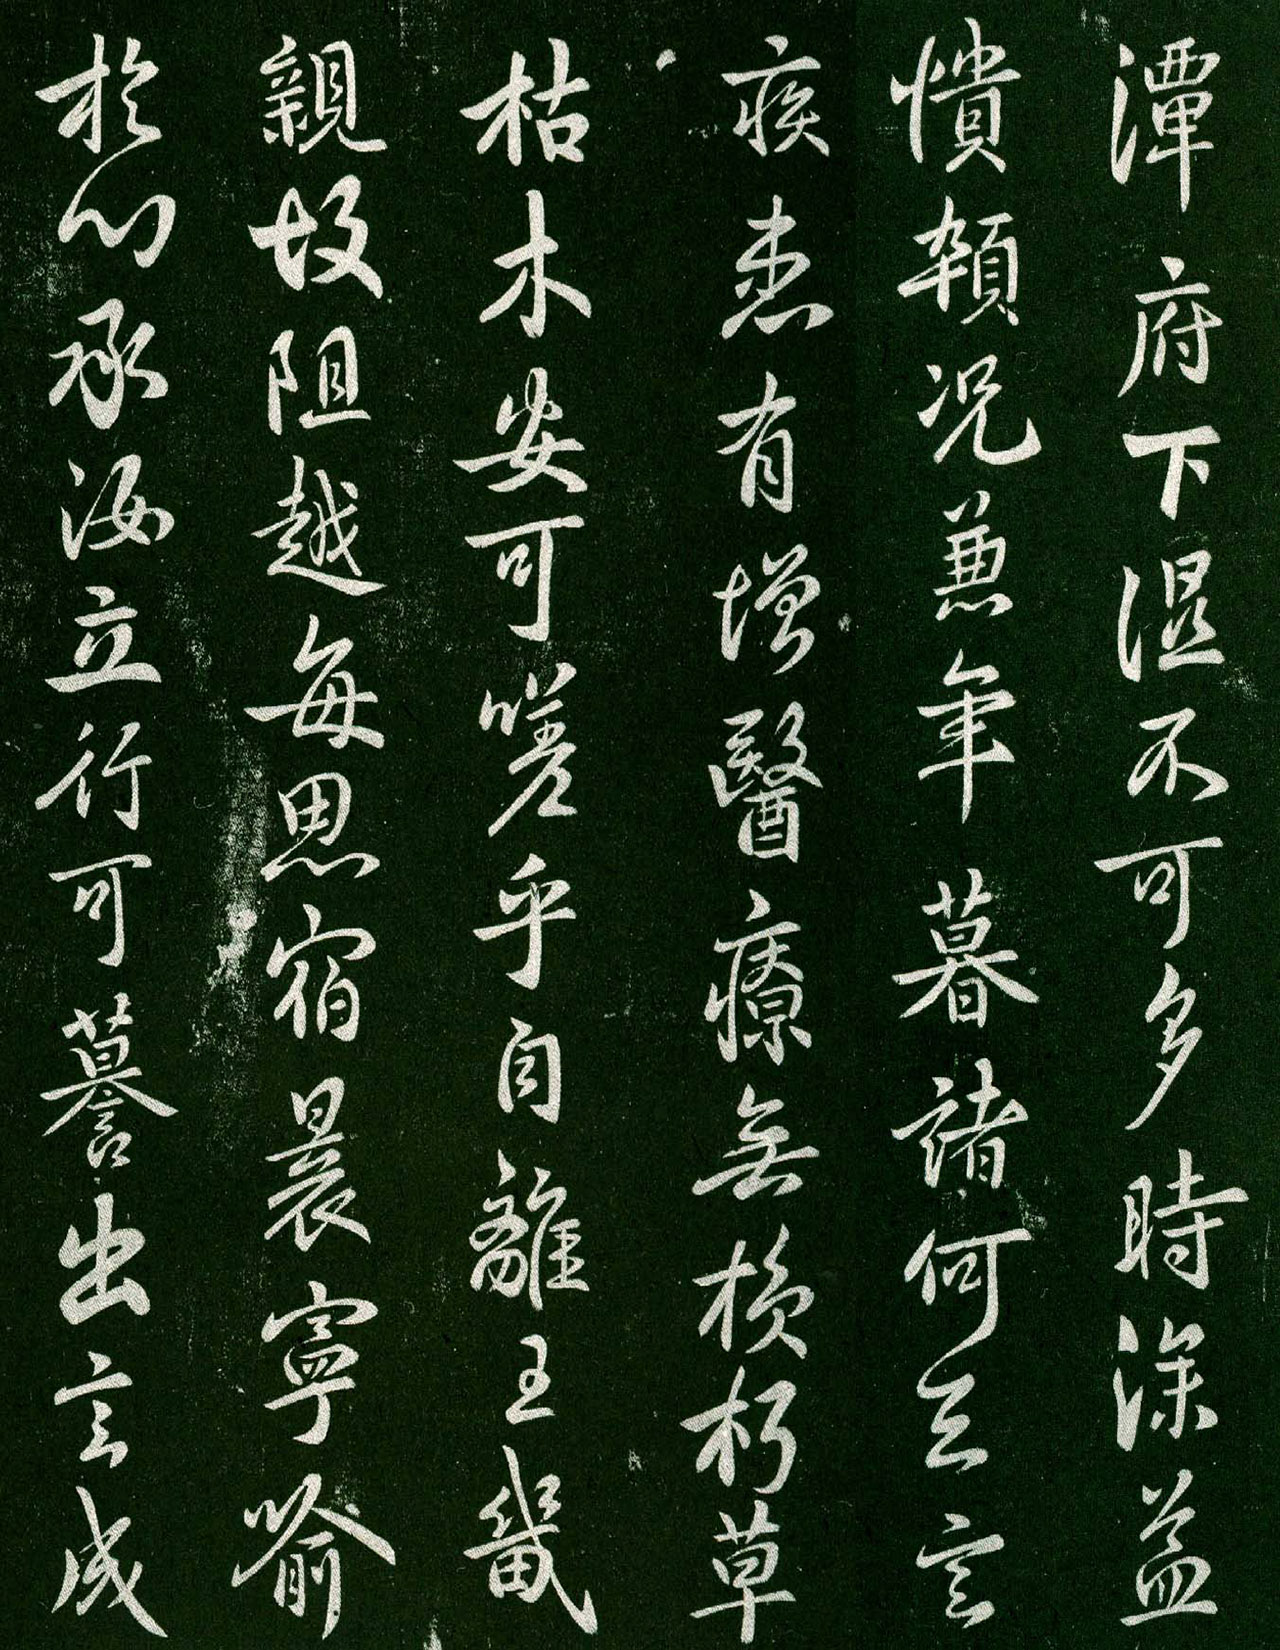 潭府下濕不可多時深益
憒頓況兼年暮諸何足言
疾患有增醫療無損朽草
枯木安可嗟乎自離王畿
親故阻越每思宿昔寧喻
於心承汝立行可譽出言成